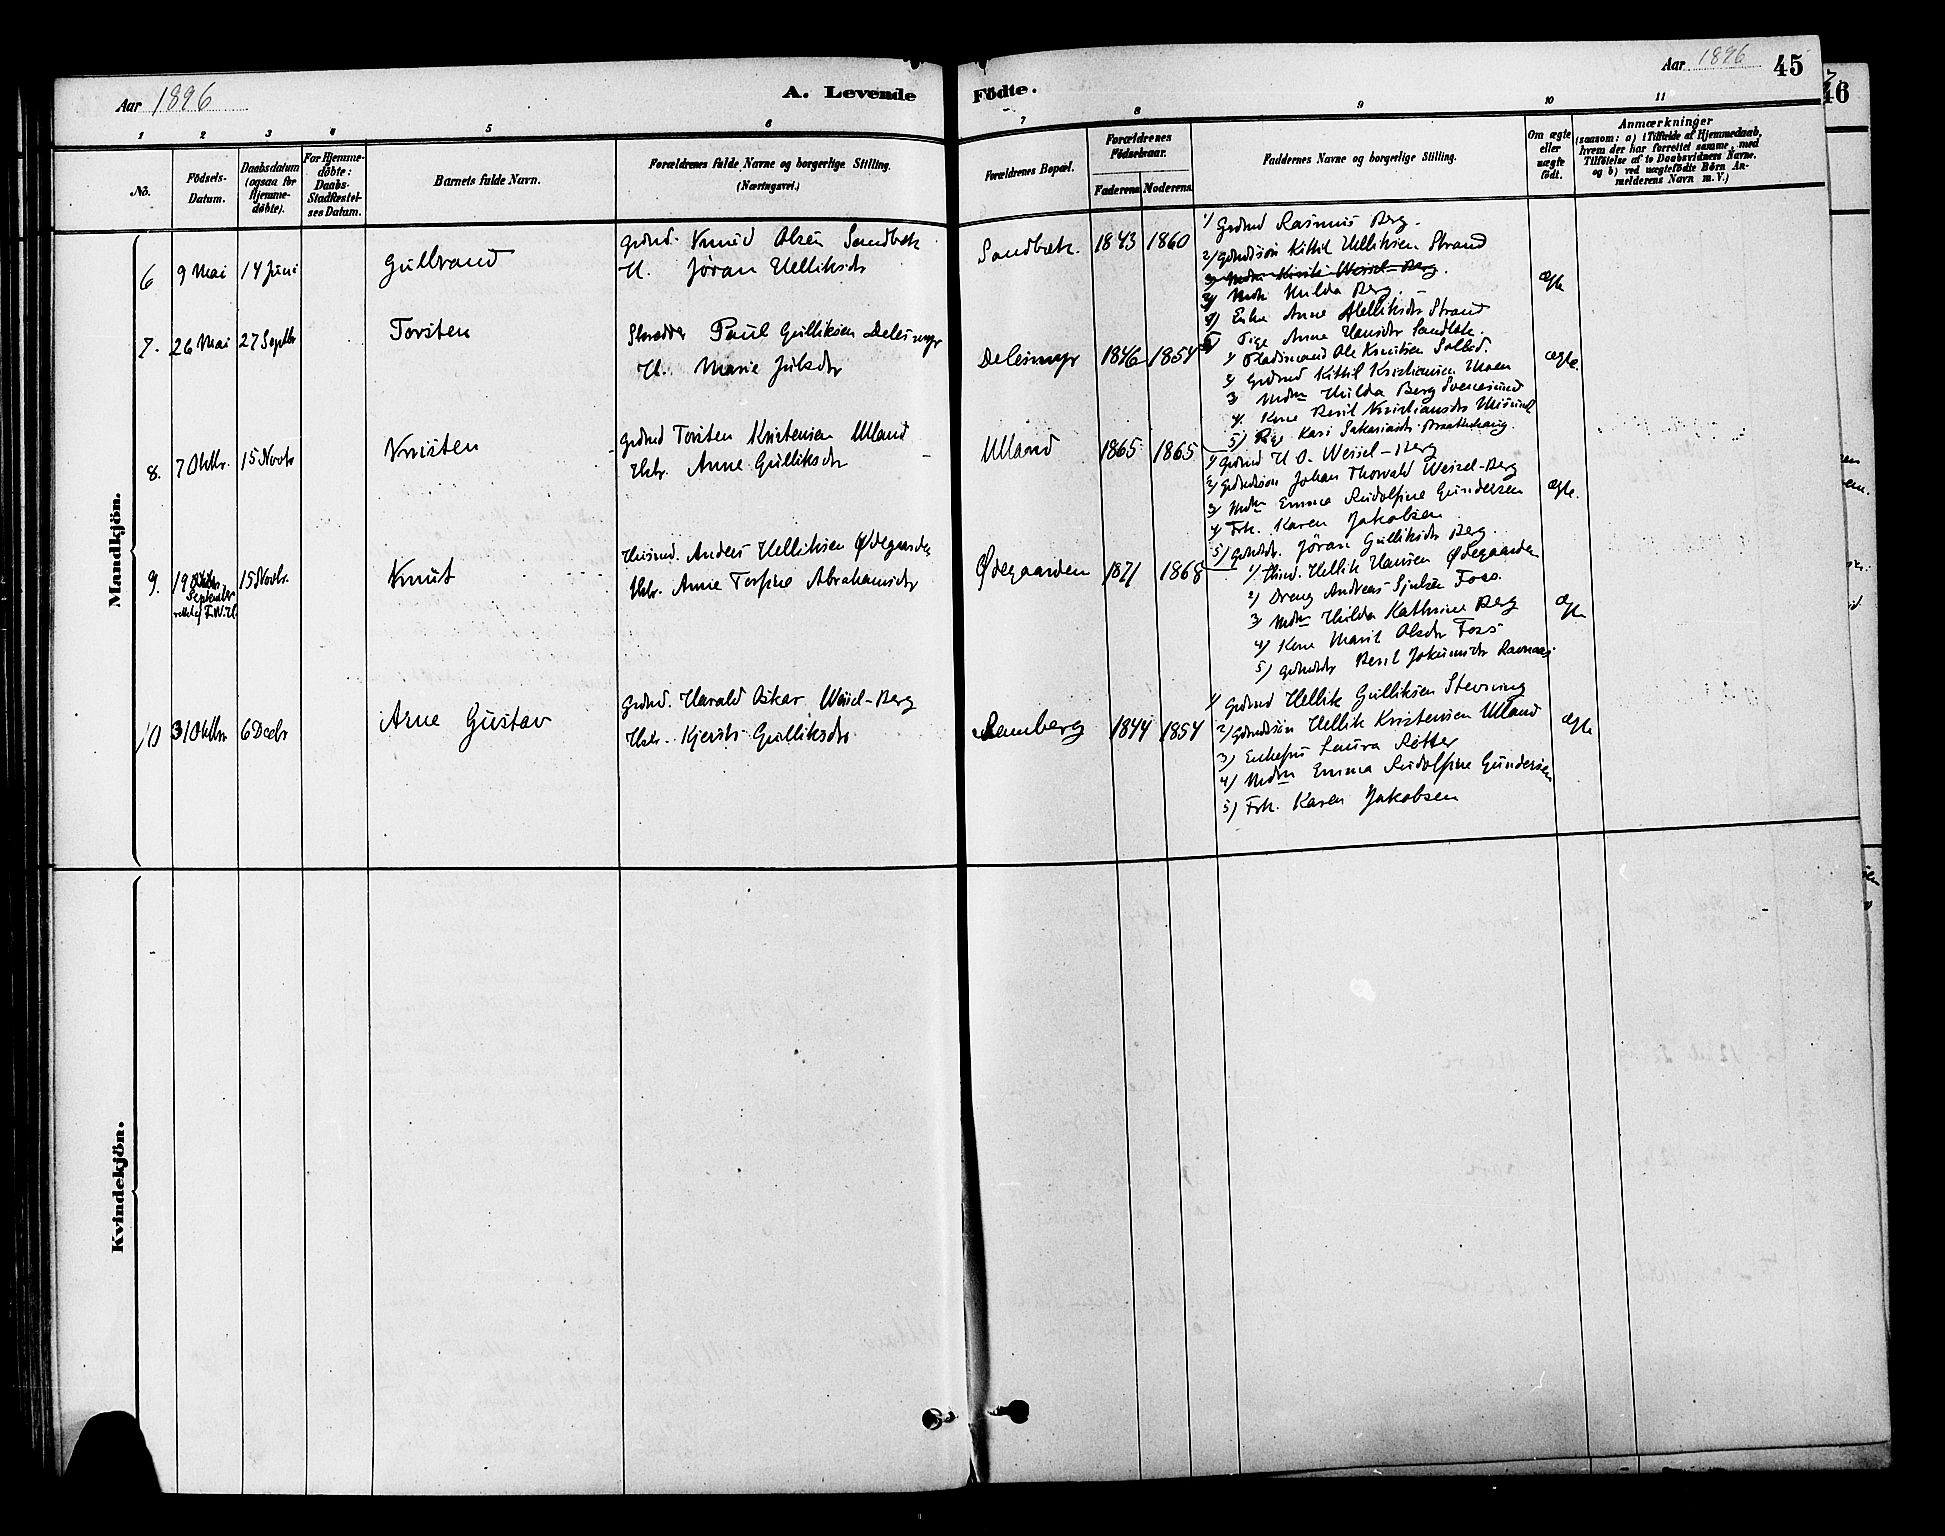 Aar 1896
A. Levende
Fødte.
Aar 1896
45
46
1 2 3 4 5 6 7 8 9 10 11
No.
Fødsels-
Datum.
Daabsdatum
(ogsaa for
Hjemme-
døbte).
For Hjemme-
døbte:
Daabs-
Stadfæstel-
ses Datum.
Barnets fulde Navn.
Forældrenes fulde Navne og borgerlige Stilling.
(Næringsvei.)
Forældrenes Bopæl.
Forældrenes
Fødselsaar.
Faderens Moderens
Faddernes Navne og borgerlige Stilling.
Om ægte
eller
uægte
født.
Anmærkninger
(saasom: a) i Tilfælde af Hjemmedaab,
hvem der har forrettet samme, med
Tilføielse af to Daabsvidners Navne.
og b) ved uægtefødte Børn An-
melderens Navn m. V.)
Mandkjön.
6 9 Mai 14 Juni
Gulbrand
Grdmd. Knud Olsen Sandbæk
H. Jøran Helliksdr
Sandbæk. 1843 1860
1) Grdmd Rasmus Berg.
2) Grdmdssøn Kittil Helliksen Strand
3) Mdm Kirsti Weisel-Berg.
3) Mdm Hilda Berg.
4) Enke Anne Helliksdr Strand
5) Pige Anne Hansdr Sandbæk.
ægte
7. 26 Mai 27 Septbr
Torsten
Skrædder Paul Gulliksen Delesmyr
H. Marie Julsdr
Delesmyr 1846 1854
1) Pladsmand Ole Knutsen
2) Grdmd Kittil Kristiansen Moen
3) Mdm Hilda Berg Svenesund
4. Kone Beril Kristiansdr
5) Pige Kari
ægte.
8. 7 Oktbr. 15 Novbr
Kristen
Grdmd Torsten Kristensen Uland
Hstr. Anne Gulliksdr
Uland 1865 1865
1) Grdmd H. O. Weisel-Berg
2) Grdmdssøn Johan Thorvald Weisel-Berg
3) Mdm Emma Rudolfine Gundersen
4) Frk. Karen Jakobsen
5) Grdmdsdr. Jøran Gulliksdr Berg.
ægte.
9. 19 Oktbr. 15 Novbr.
September
rettet F.W.H.
Knut
Husmd. Anders Helliksen Ødegaarden
Hstr. Anne Torfine Abrahamsdr
Ødegaarden 1871 1868
1) Husmd. Hellik Hansen Ødegaarden
2) Dreng Andreas Sjulsen Foss.
3) Mdm Hilda Kathrine Berg
4) Kone Marit Olsdr Foss
5) Grdmdsdr Beril Jokumsdr Ravnaas
ægte
10 31 Oktbr 6 Decbr
Arne Gustav
Grdmd. Harald Oskar Weisel-Berg
Hstr. Kjersti Gulliksdr.
Ramberg 1844 1854
1) Grdmd Hellik Gulliksen Stevning
2) Grdmdssøn Hellik Kristensen Uland
3) Enkefru Laura Røtter
4) Mdm Emma Rudolfine Gundersen
5) Frk. Karen Jakobsen
ægte
Kvindekjön.